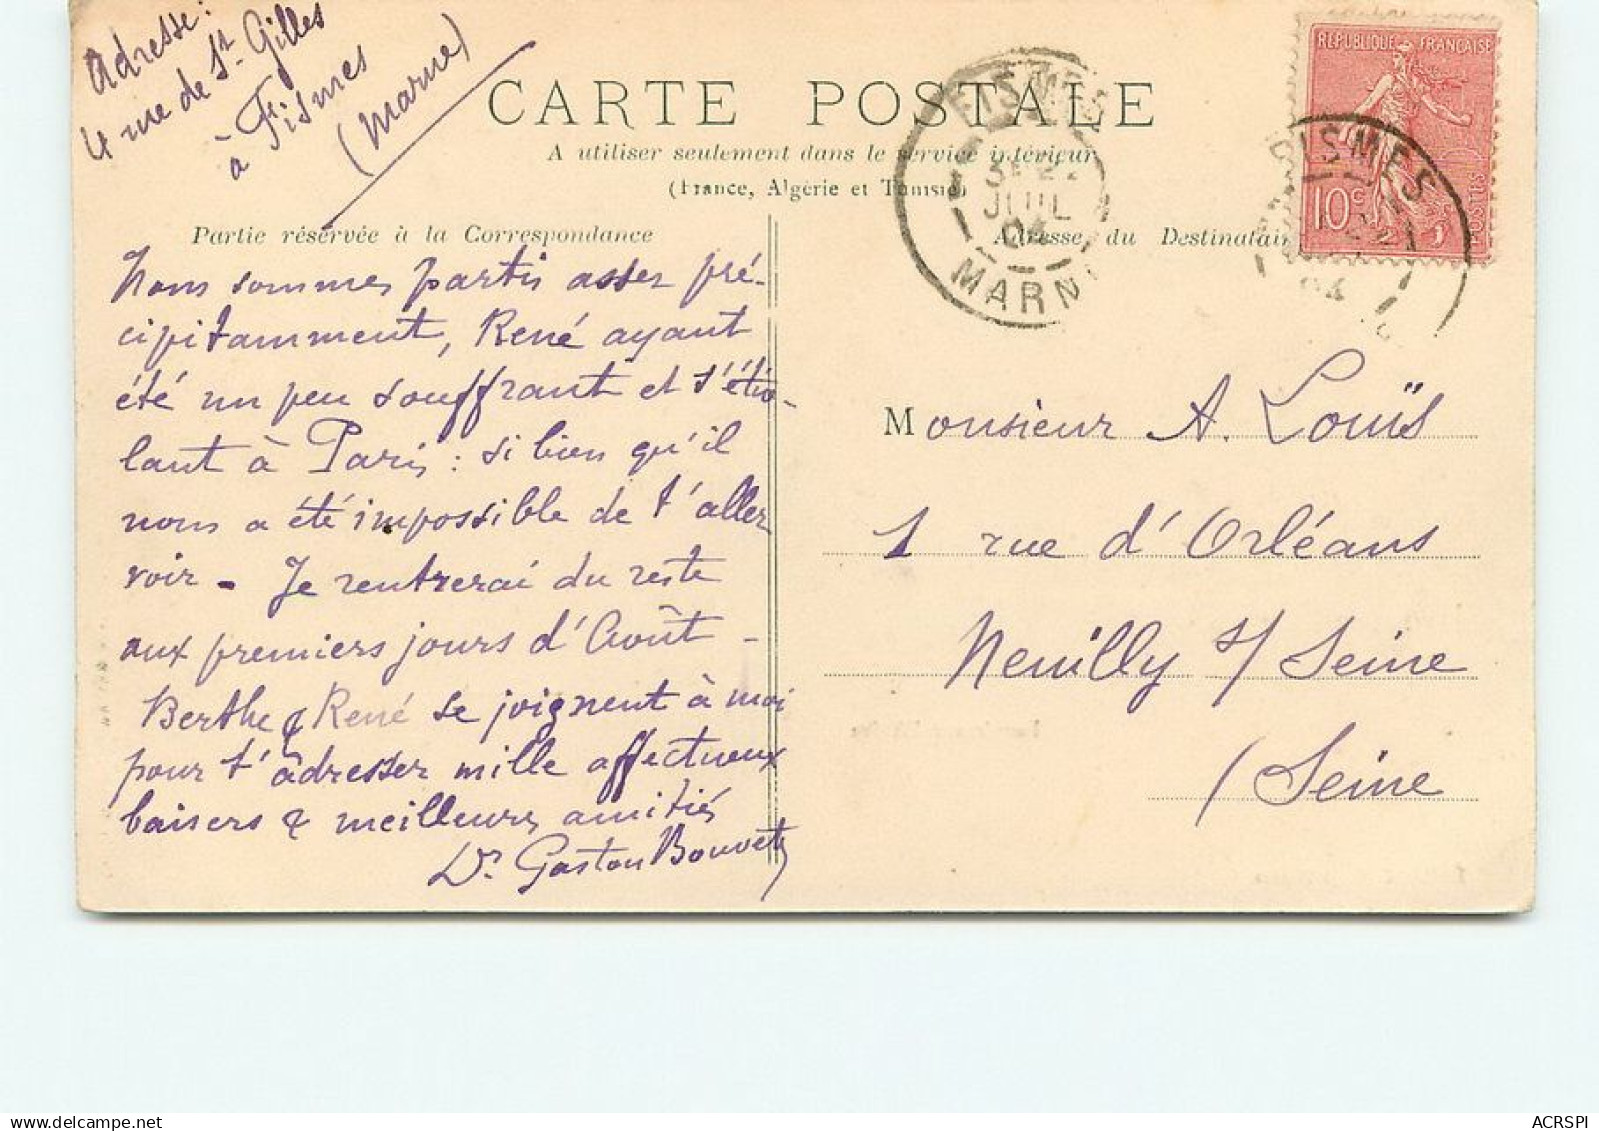 Adresse :
4 rue de St Gilles
à Fismes
(Marne)
CARTE POSTALE
A utiliser seulement dans le service intérieur
(France, Algérie et Tunisie)
Partie réservée à la Correspondance
Nous sommes partis assez pré-
cipitamment, René ayant
été un peu souffrant et s'étio-
lant à Paris : si bien qu'il
nous a été impossible de t'aller
voir - Je rentrerai du reste
aux premiers jours d'Août -
Berthe & René se joignent à moi
pour t'adresser mille affectueux
baisers & meilleures amitiés
Dr Gaston Bouvet
FISMES
JUIL
04
MARNE
REPUBLIQUE FRANÇAISE
10c
POSTES
FISMES
04
Adresse du Destinatair
Monsieur A. Louïs
1 rue d'Orléans
Neuilly s/ Seine
(Seine
ACRSPI